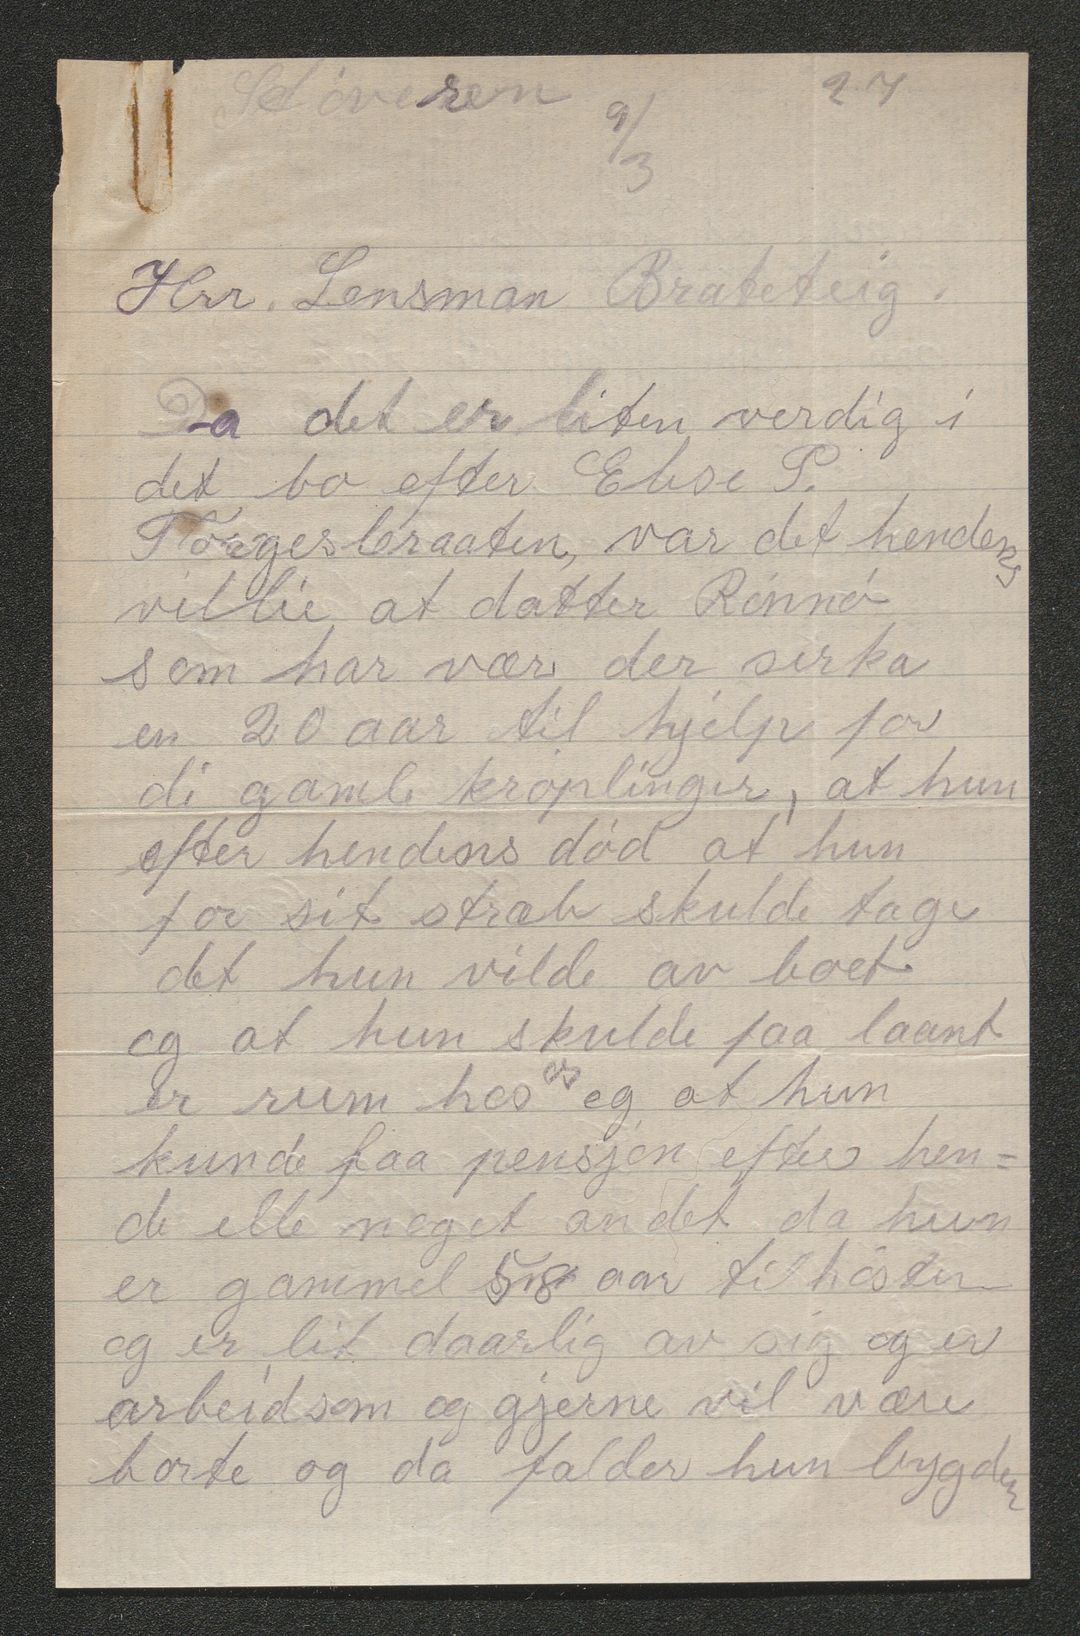 Støveren 9/3 27
Hrr. Lensman Brateteig.
Da det er liten verdig i
det bo efter Elise P.
Törgersbraaten, var det hendens
villie at datter Rönnö
som har vær der serka
en 20 aar til hjelp for
di gamle kröplinger, at hun
efter hendens död at hun
for sit stræb skulde tage
det hun vilde av boet
og at hun skulde faa laant
er rum hos os og at hun
kunde faa pensjon efter hen=
de elle noget andet da hun
er gammel 58 aar til hösten
og er lit daarlig av sig og er
arbeidsom og gjerne vil være
borte og da falder hun bygden